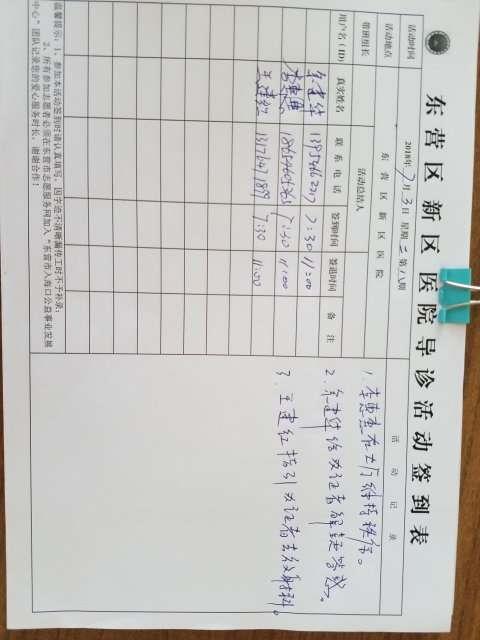 东营区新区医院导诊活动签到表
活动时间 2018年7月3日 星期二 第八期
活动地点 东营区新区医院
带班组长 活动总结人 活动记录
用户名(ID) 真实姓名 联系电话 签到时间 签退时间 备注
建华 13954662217 7:30 11:00
李惠 7:30 11:00
王建红 13176471899 7:30 11:00
1、李惠在大厅维持秩序。
2、建华给办证者解疑答惑。
3、王建红指引办证者去放射科。
温馨提示:1、参加本活动签到时请认真填写,因字迹不清晰漏传工时不予补录;
2、所有参加志愿者必须在东营市志愿服务网加入“东营市入海口公益事业发展
中心”团队记录您的爱心服务时长,谢谢合作!